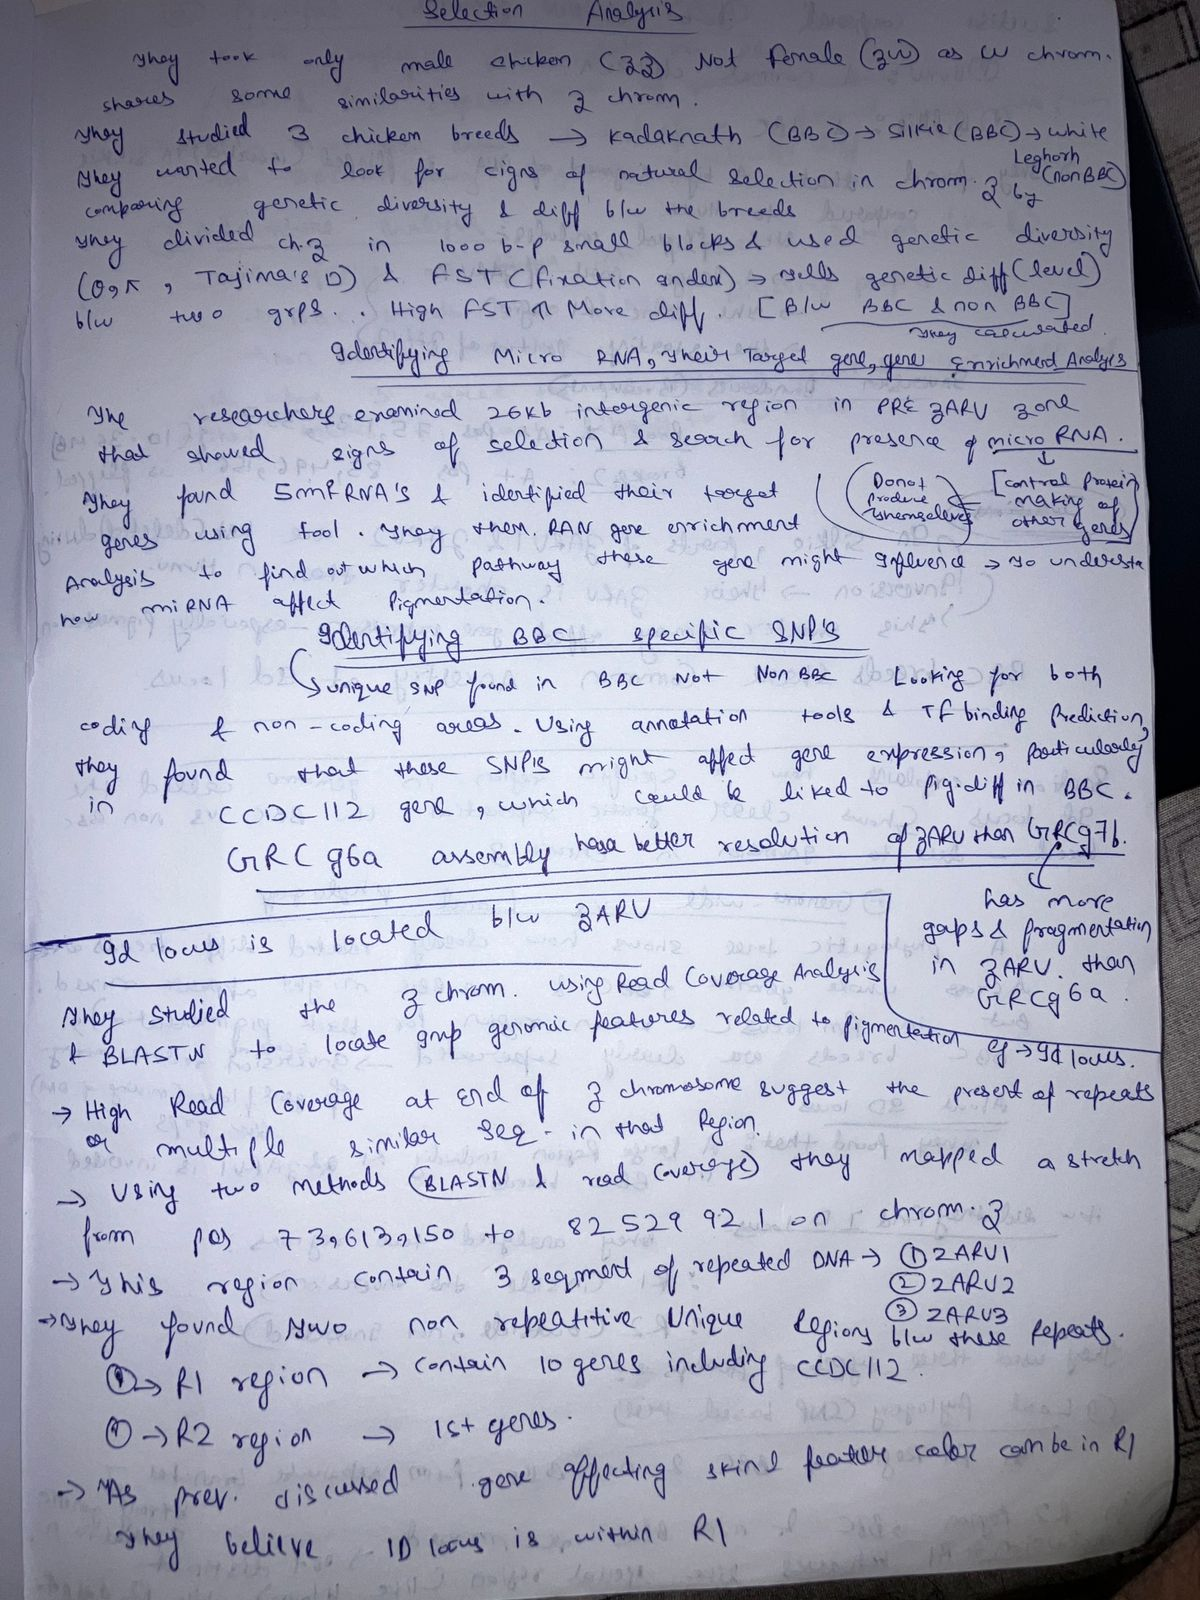 Selection Analysis
They took only male chicken (ZZ) Not Female (ZW) as W chrom.
shares some similarities with Z chrom.
They studied 3 chicken breeds → Kadaknath (BBC) → Silkie (BBC) → white
Leghorn (non BBC)
They wanted to look for signs of natural selection in chrom. Z by
comparing genetic diversity & diff b/w the breeds
They divided ch. Z in 1000 b-p small blocks & used genetic diversity
(θ, π, Tajima's D) & FST (fixation index) → tells genetic diff (level)
b/w two grps. . High FST ↑ More diff. [B/w BBC & non BBC]
They calculated.
Identifying Micro RNA, Their Target gene, gene Enrichment Analysis
The researchers examined 26kb intergenic region in PRE ZARU zone
that showed signs of selection & search for presence of micro RNA.
They found 5 miRNA's & identified their target
(Donot produce themselves
[control protein making of other genes
genes using tool. They them. RAN gene enrichment
Analysis to find out which pathway these gene might Influence → To understa
how miRNA affect Pigmentation.
Identifying BBC specific SNP's
unique SNP found in BBC Not Non BBC Looking for both
coding & non-coding areas. Using annotation tools & TF binding Prediction,
they found that these SNP's might affect gene expression, particularly
in CCDC112 gene, which could be liked to pig. diff in BBC.
GRC g6a assembly has a better resolution of ZARU than GRCg7b.
has more
gaps & fragmentation
in ZARU. than
GRCg6a.
Id locus is located b/w ZARU
They studied the Z chrom. using Read Coverage Analysis
& BLASTN to locate gnmp genomic features related to pigmentation eg → Id locus.
→ High Read Coverage at End of Z chromosome suggest the present of repeats
or multiple similar seq - in that Region.
→ Using two methods (BLASTN & read coverage) they mapped a stretch
from pos 73,613,150 to 82 529 921 on chrom. Z
→ This region contain 3 segment of repeated DNA → ① ZARU1
② ZARU2
③ ZARU3
→ They found two non repeatitive Unique Regions b/w these Repeats.
① → R1 region → contain 10 genes including CCDC112.
① → R2 region → 15+ genes.
→ As prev. discussed gene affecting skin & feather color can be in R1
They believe ID locus is within R1